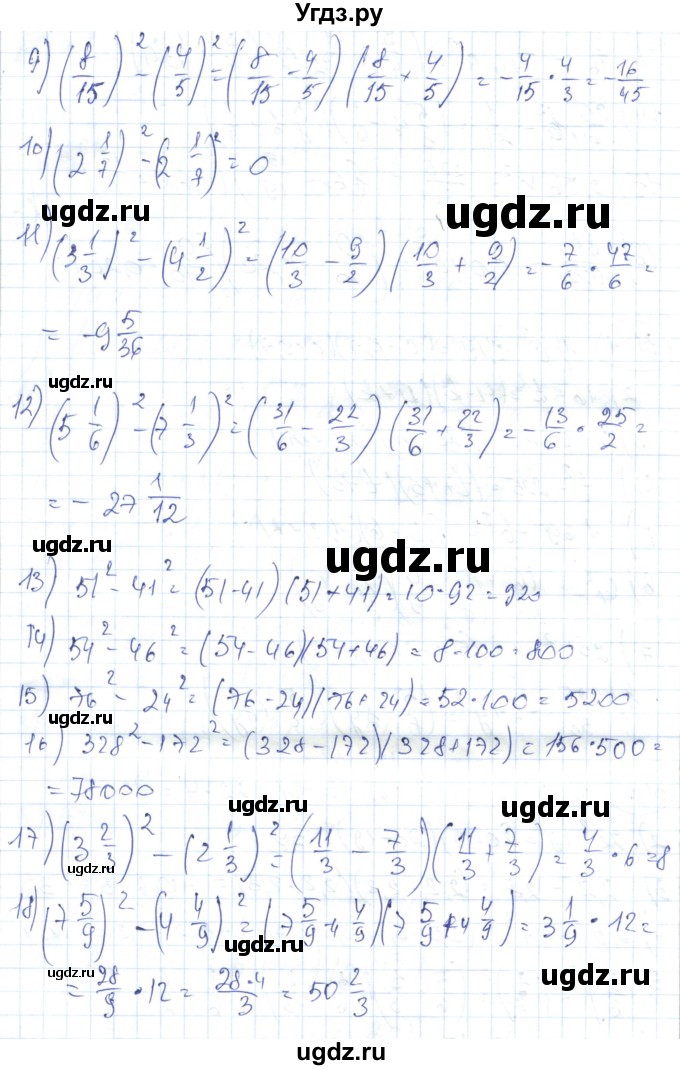 Угдз.ру
9) (8/15)² - (4/5)² = (8/15 - 4/5)(8/15 + 4/5) = -4/15 · 4/3 = -16/45
10) (2 1/7)² - (2 1/7)² = 0
ugdz.ru ugdz.ru
ugdz.ru
11) (3 1/3)² - (4 1/2)² = (10/3 - 9/2)(10/3 + 9/2) = -7/6 · 47/6 =
= -9 5/36
ugdz.ru
ugdz.ru
12) (5 1/6)² - (7 1/3)² = (31/6 - 22/3)(31/6 + 22/3) = -13/6 · 25/2 =
= -27 1/12
ugdz.ru
ugdz.ru
13) 51² - 41² = (51-41)(51+41) = 10·92 = 920
14) 54² - 46² = (54-46)(54+46) = 8·100 = 800
ugdz.ru
15) 76² - 24² = (76-24)(76+24) = 52·100 = 5200
ugdz.ru
16) 328² - 172² = (328-172)(328+172) = 156·500 =
= 78000
ugdz.ru ugdz.ru
17) (3 2/3)² - (2 1/3)² = (11/3 - 7/3)(11/3 + 7/3) = 4/3 · 6 = 8
ugdz.ru
ugdz.ru
18) (7 5/9)² - (4 4/9)² = (7 5/9 + 4 4/9)(7 5/9 + 4 4/9) = 3 1/9 · 12 =
ugdz.ru
ugdz.ru
= 28/9 · 12 = 28·4/3 = 50 2/3
ugdz.ru